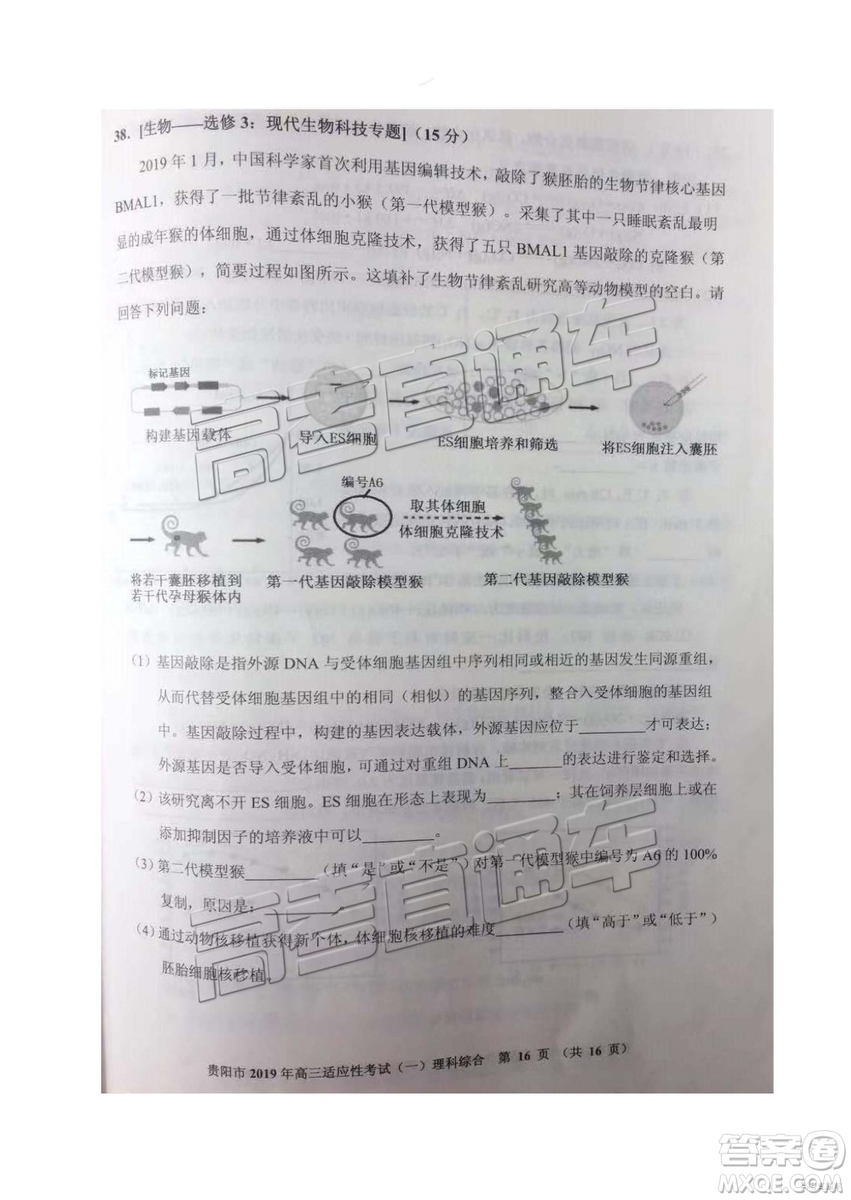 38. [生物——选修 3：现代生物科技专题]（15 分）
2019 年 1 月，中国科学家首次利用基因编辑技术，敲除了猴胚胎的生物节律核心基因
BMAL1，获得了一批节律紊乱的小猴（第一代模型猴）。采集了其中一只睡眠紊乱最明
显的成年猴的体细胞，通过体细胞克隆技术，获得了五只 BMAL1 基因敲除的克隆猴（第
二代模型猴），简要过程如图所示。这填补了生物节律紊乱研究高等动物模型的空白。请
回答下列问题：
标记基因
构建基因载体
导入ES细胞
ES细胞培养和筛选
将ES细胞注入囊胚
编号A6
取其体细胞
体细胞克隆技术
将若干囊胚移植到
若干代孕母猴体内
第一代基因敲除模型猴
第二代基因敲除模型猴
（1）基因敲除是指外源 DNA 与受体细胞基因组中序列相同或相近的基因发生同源重组，
从而代替受体细胞基因组中的相同（相似）的基因序列，整合入受体细胞的基因组
中。基因敲除过程中，构建的基因表达载体，外源基因应位于________才可表达；
外源基因是否导入受体细胞，可通过对重组 DNA 上_______的表达进行鉴定和选择。
（2）该研究离不开 ES 细胞。ES 细胞在形态上表现为_________；其在饲养层细胞上或在
添加抑制因子的培养液中可以_________。
（3）第二代模型猴_________（填“是”或“不是”）对第一代模型猴中编号为 A6 的 100%
复制，原因是：_________。
（4）通过动物核移植获得新个体，体细胞核移植的难度_________（填“高于”或“低于”）
胚胎细胞核移植。
贵阳市 2019 年高三适应性考试（一）理科综合 第 16 页 （共 16 页）
高考直通车
高考直通车
答案圈
MXQE.COM